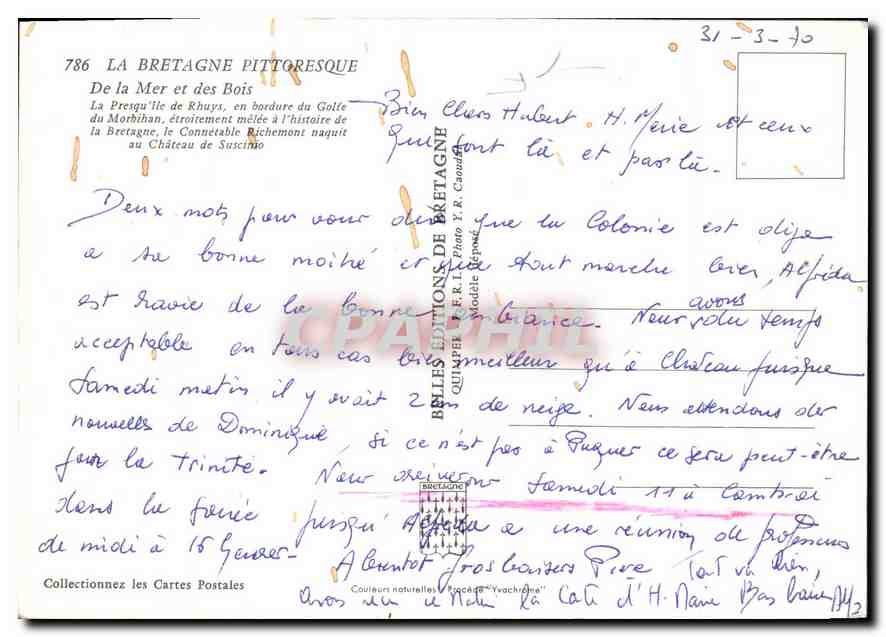 31-3-70
786 LA BRETAGNE PITTORESQUE
De la Mer et des Bois
La Presqu'Ile de Rhuys, en bordure du Golfe
du Morbihan, étroitement mêlée à l'histoire de
la Bretagne, le Connétable Richemont naquit
au Château de Suscinio
Bien Chers Hubert. H. Marie et ceux
qui sont là et pas là.
Deux mots pour vous dire que la Colonie est dija
a sa bonne moitié et que tout marche bien, Alfréda
est ravie de la bonne ambiance. Nous avons du temps
acceptable en tous cas bien meilleur qu'à Chateau jusque
Samedi matin il y avait 2 cm de neige. Nous attendons des
nouvelles de Dominique, si ce n'est pas à Paques ce sera peut-être
pour la Trinité. Nous arriverons Samedi 11 à Cambrai
dans la soirée jusqu' a une réunion de professeurs
de midi à 16 heures. A bientot Gros baisers Tout va bien,
avons vu ce matin la Cate d'H. Marie Bons baisers
BELLES EDITIONS DE BRETAGNE
QUIMPER J. F. R. I. Photo Y. R. Caoudal
Modèle déposé
BRETAGNE
CPAPHIL
Collectionnez les Cartes Postales
Couleurs naturelles Procédé "Yvachrome"